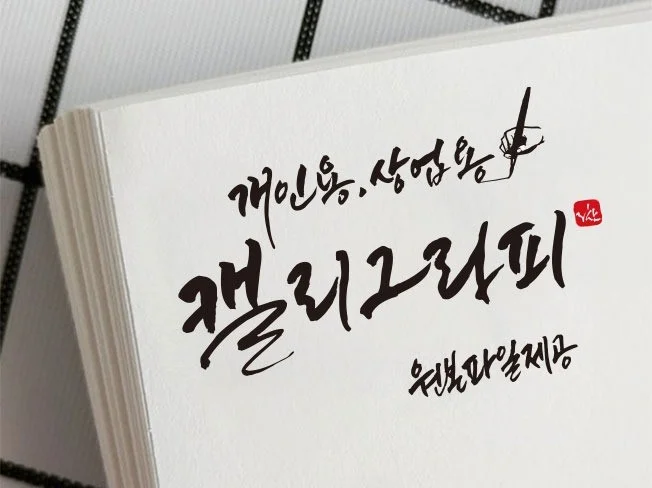 개인용.상업용
캘리그라피
원본파일제공